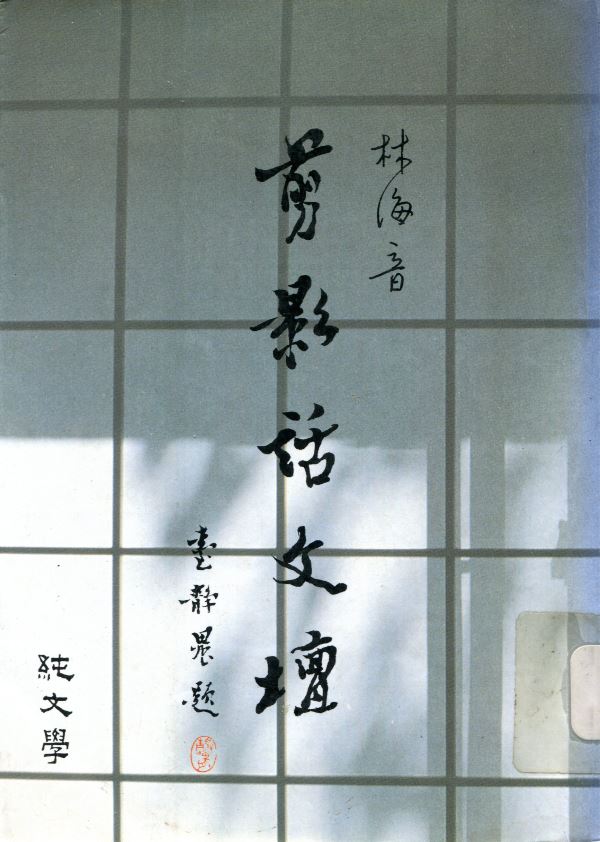 林海音
剪影話文壇
臺靜農題
純文學